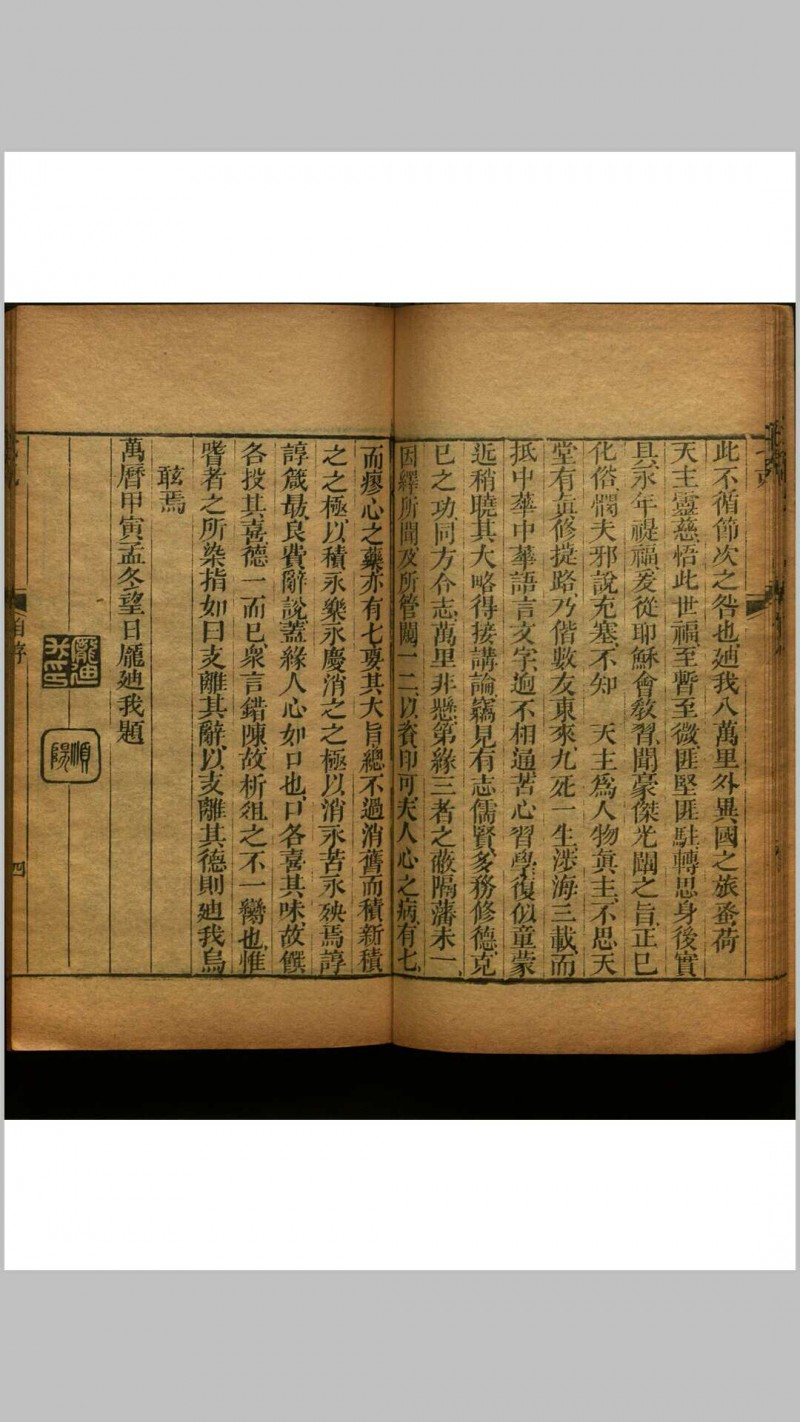 此不循節次之咎也廸我八萬里外異國之旅蚤荷
天主靈慈悟此世福至暫至微匪堅匪駐轉思身後實
具永年禔福爰從耶穌會敎習聞豪傑光闢之旨正已
化俗憫夫邪說充塞不知　天主爲人物眞主不思天
堂有眞修捷路乃偕數友東來九死一生涉海三載而
抵中華中華語言文字逈不相通苦心習學復似童蒙
近稍曉其大略得接講論竊見有志儒賢多務修德克
已之功同方合志萬里非懸第緣三者之蔽隔藩未一
因繹所聞及所管闚一二以資印可夫人心之病有七
而瘳心之藥亦有七要其大旨總不過消舊而積新積
之之極以積永樂永慶消之之極以消永苦永殃焉諄
諄箴最良費辭說葢緣人心如口也口各喜其味故饌
各投其喜德一而已衆言錯陳故析俎之不一臠也惟
嗜者之所染指如曰支離其辭以支離其德則廸我烏
敢焉
萬曆甲寅孟冬望日龐廸我題
龐迪我印
順陽
自序
四